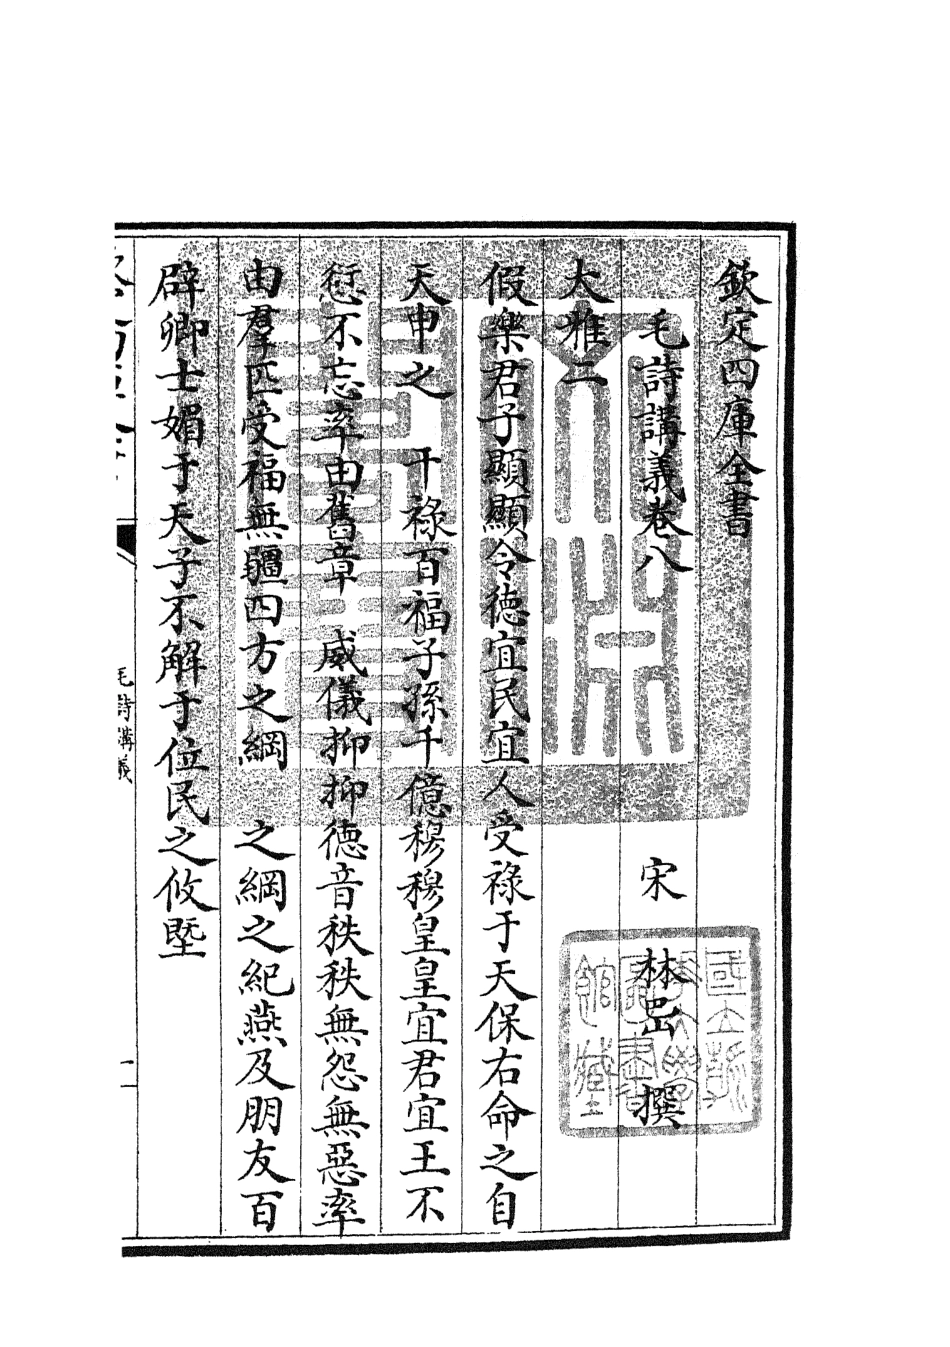 欽定四庫全書
毛詩講義卷八
宋 林岊 撰
大雅二
假樂君子顯顯令徳宜民宜人受祿于天保右命之自
天申之 干祿百福子孫千億穆穆皇皇宜君宜王不
愆不忘率由舊章 威儀抑抑徳音秩秩無怨無惡率
由羣匹受福無疆四方之綱 之綱之紀燕及朋友百
辟卿士媚于天子不解于位民之攸塈
毛詩講義